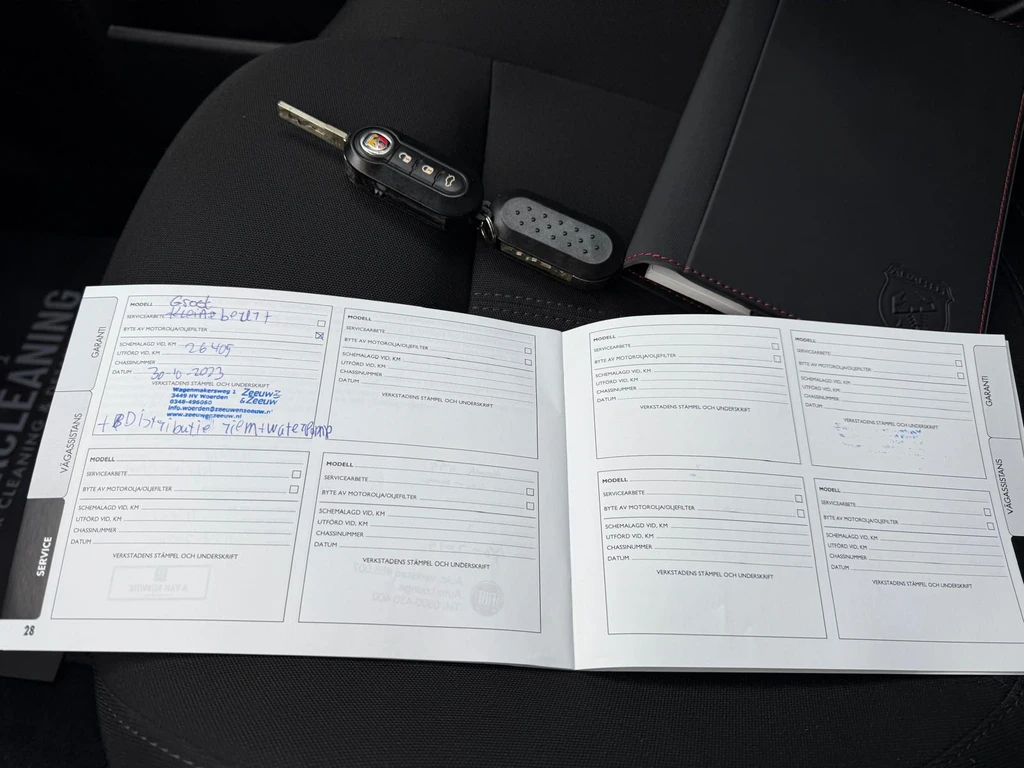 GARANTI
VÄGASSISTANS
SERVICE
28
MODELL Groot
SERVICEARBETE Kleine beurt
BYTE AV MOTOROLJA/OLJEFILTER
SCHEMALAGD VID, KM 26409
UTFÖRD VID, KM
CHASSINUMMER
DATUM 30-10-2023
VERKSTADENS STÄMPEL OCH UNDERSKRIFT
Wagenmakersweg 1
3449 HV Woerden
0348-496060
info.woerden@zeeuwenzeeuw.nl
www.zeeuwenzeeuw.nl
Zeeuw
&Zeeuw
+ Distributie riem+waterpomp
MODELL
SERVICEARBETE
BYTE AV MOTOROLJA/OLJEFILTER
SCHEMALAGD VID, KM
UTFÖRD VID, KM
CHASSINUMMER
DATUM
VERKSTADENS STÄMPEL OCH UNDERSKRIFT
MODELL
SERVICEARBETE
BYTE AV MOTOROLJA/OLJEFILTER
SCHEMALAGD VID, KM
UTFÖRD VID, KM
CHASSINUMMER
DATUM
VERKSTADENS STÄMPEL OCH UNDERSKRIFT
MODELL
SERVICEARBETE
BYTE AV MOTOROLJA/OLJEFILTER
SCHEMALAGD VID, KM
UTFÖRD VID, KM
CHASSINUMMER
DATUM
VERKSTADENS STÄMPEL OCH UNDERSKRIFT
MODELL
SERVICEARBETE
BYTE AV MOTOROLJA/OLJEFILTER
SCHEMALAGD VID, KM
UTFÖRD VID, KM
CHASSINUMMER
DATUM
VERKSTADENS STÄMPEL OCH UNDERSKRIFT
MODELL
SERVICEARBETE
BYTE AV MOTOROLJA/OLJEFILTER
SCHEMALAGD VID, KM
UTFÖRD VID, KM
CHASSINUMMER
DATUM
VERKSTADENS STÄMPEL OCH UNDERSKRIFT
MODELL
SERVICEARBETE
BYTE AV MOTOROLJA/OLJEFILTER
SCHEMALAGD VID, KM
UTFÖRD VID, KM
CHASSINUMMER
DATUM
VERKSTADENS STÄMPEL OCH UNDERSKRIFT
MODELL
SERVICEARBETE
BYTE AV MOTOROLJA/OLJEFILTER
SCHEMALAGD VID, KM
UTFÖRD VID, KM
CHASSINUMMER
DATUM
VERKSTADENS STÄMPEL OCH UNDERSKRIFT
GARANTI
VÄGASSISTANS
CLEANING